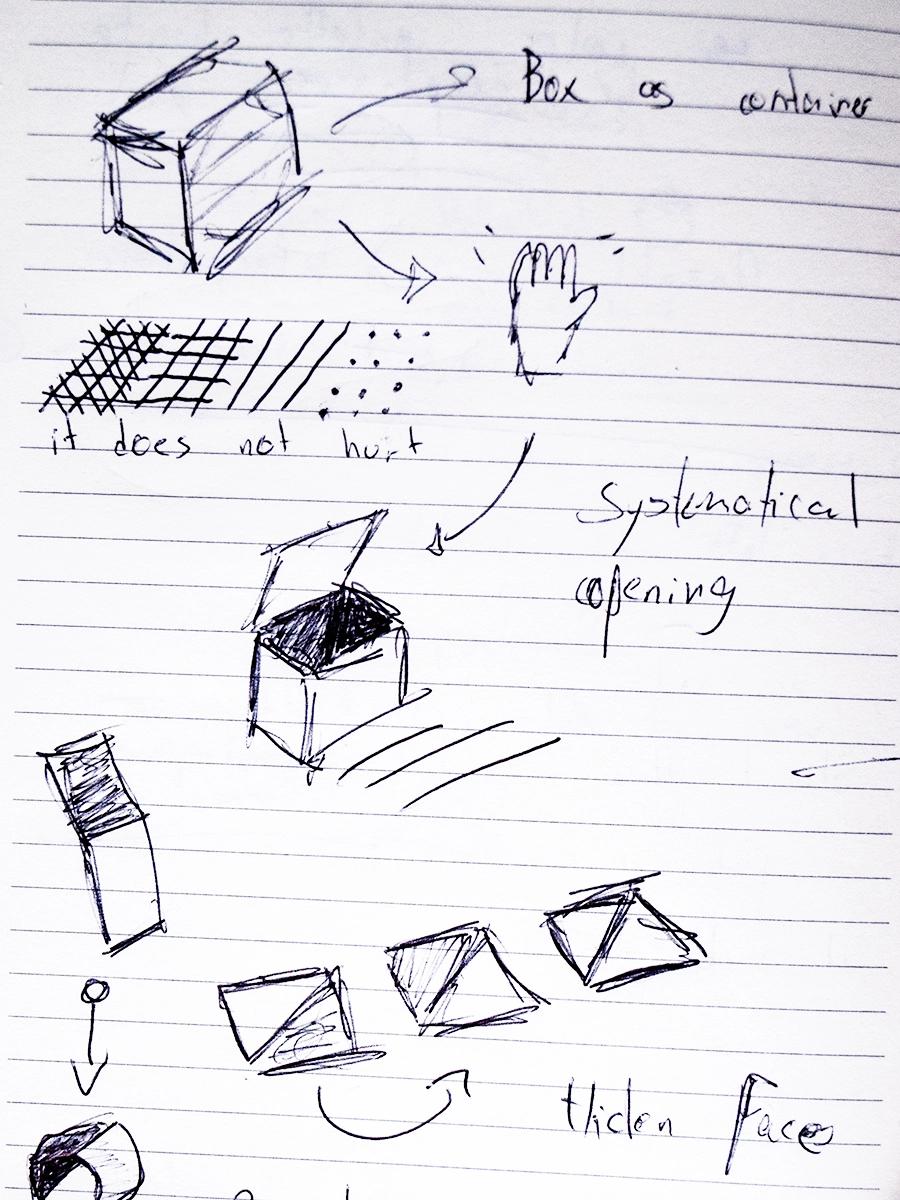 Box as container
it does not hurt
Systematical
opening
Hiden Faces